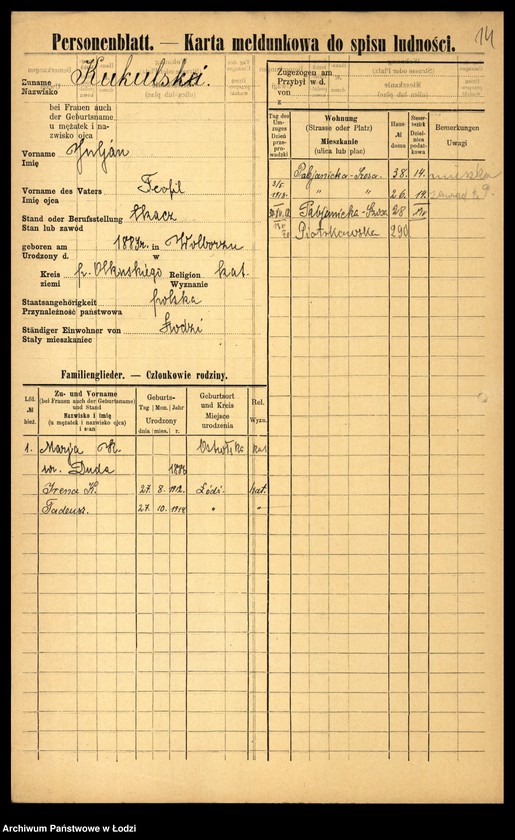 14
Personenblatt. — Karta meldunkowa do spisu ludności.
Zuname
Nazwisko
Kukulski
bei Frauen auch
der Geburtsname
u mężatek i na-
zwisko ojca
Vorname
Imię
Julján
Vorname des Vaters
Imię ojca
Teofil
Stand oder Berufsstellung
Stan lub zawód
tkacz
geboren am 1883r. in Wolborzu
Urodzony d. w
Kreis
ziemi
p. Olkuskiego
Religion
Wyznanie
kat.
Staatsangehörigkeit
Przynależność państwowa
polska
Ständiger Einwohner von
Stały mieszkaniec
Łodzi
Familienglieder. — Członkowie rodziny.
Lfd.
№
bież.
Zu- und Vorname
(bei Frauen auch der Geburtsname)
und Stand
Nazwisko i imię
(u mężatek i nazwisko ojca)
i stan
Geburts-
Tag Mon. Jahr
Urodzony
dnia mies. r.
Geburtsort
und Kreis
Miejsce
urodzenia
Rel.
Wyzn.
1. Marja K. kat
Duda 1886
Irena K. 27. 8. 1912. Łódź. kat.
Tadeusz. 27. 10. 1914 " "
Zugezogen am
Przybył w d.
von
z
Tag des
Um-
zuges
Dzień
przepro-
wadzki
Wohnung
(Strasse oder Platz)
Mieszkanie
(ulica lub plac)
Haus-
№
domu
Steuer-
bezirk
Dziel-
nica
podat-
kowa
Bemerkungen
Uwagi
Pabjanicka-Szosa. 28. 14. mieszka
" " 26. 14.
Pabjanicka-Szosa 28
Piotrkowska 290
Archiwum Państwowe w Łodzi